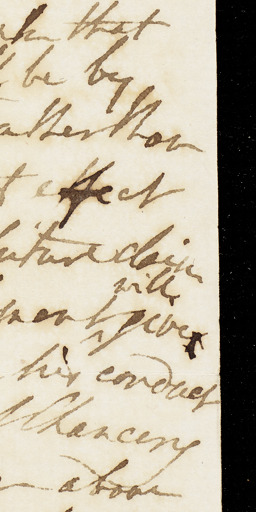 that
be by
rather than
effect
future claim
will
ment give
his conduct
Chancery
above